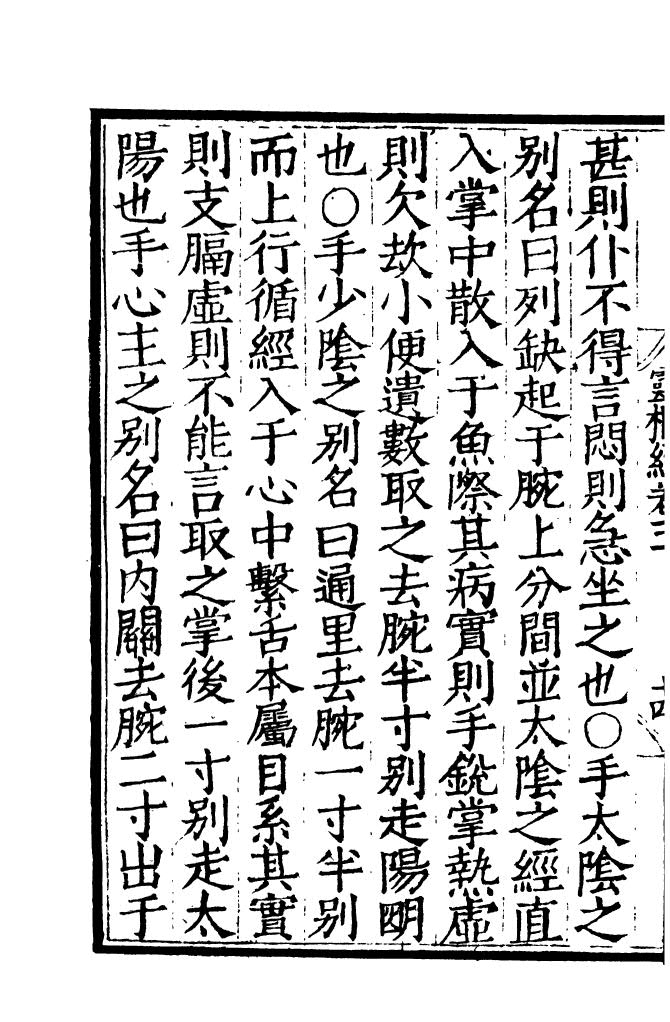 甚則仆不得言悶則急坐之也○手太陰之
别名曰列缺起于腕上分間並太陰之經直
入掌中散入于魚際其病實則手銳掌熱虛
則欠㰦小便遺數取之去腕半寸别走陽明
也○手少陰之别名曰通里去腕一寸半别
而上行循經入于心中繫舌本屬目系其實
則支膈虛則不能言取之掌後一寸别走太
陽也手心主之别名曰内關去腕二寸出于